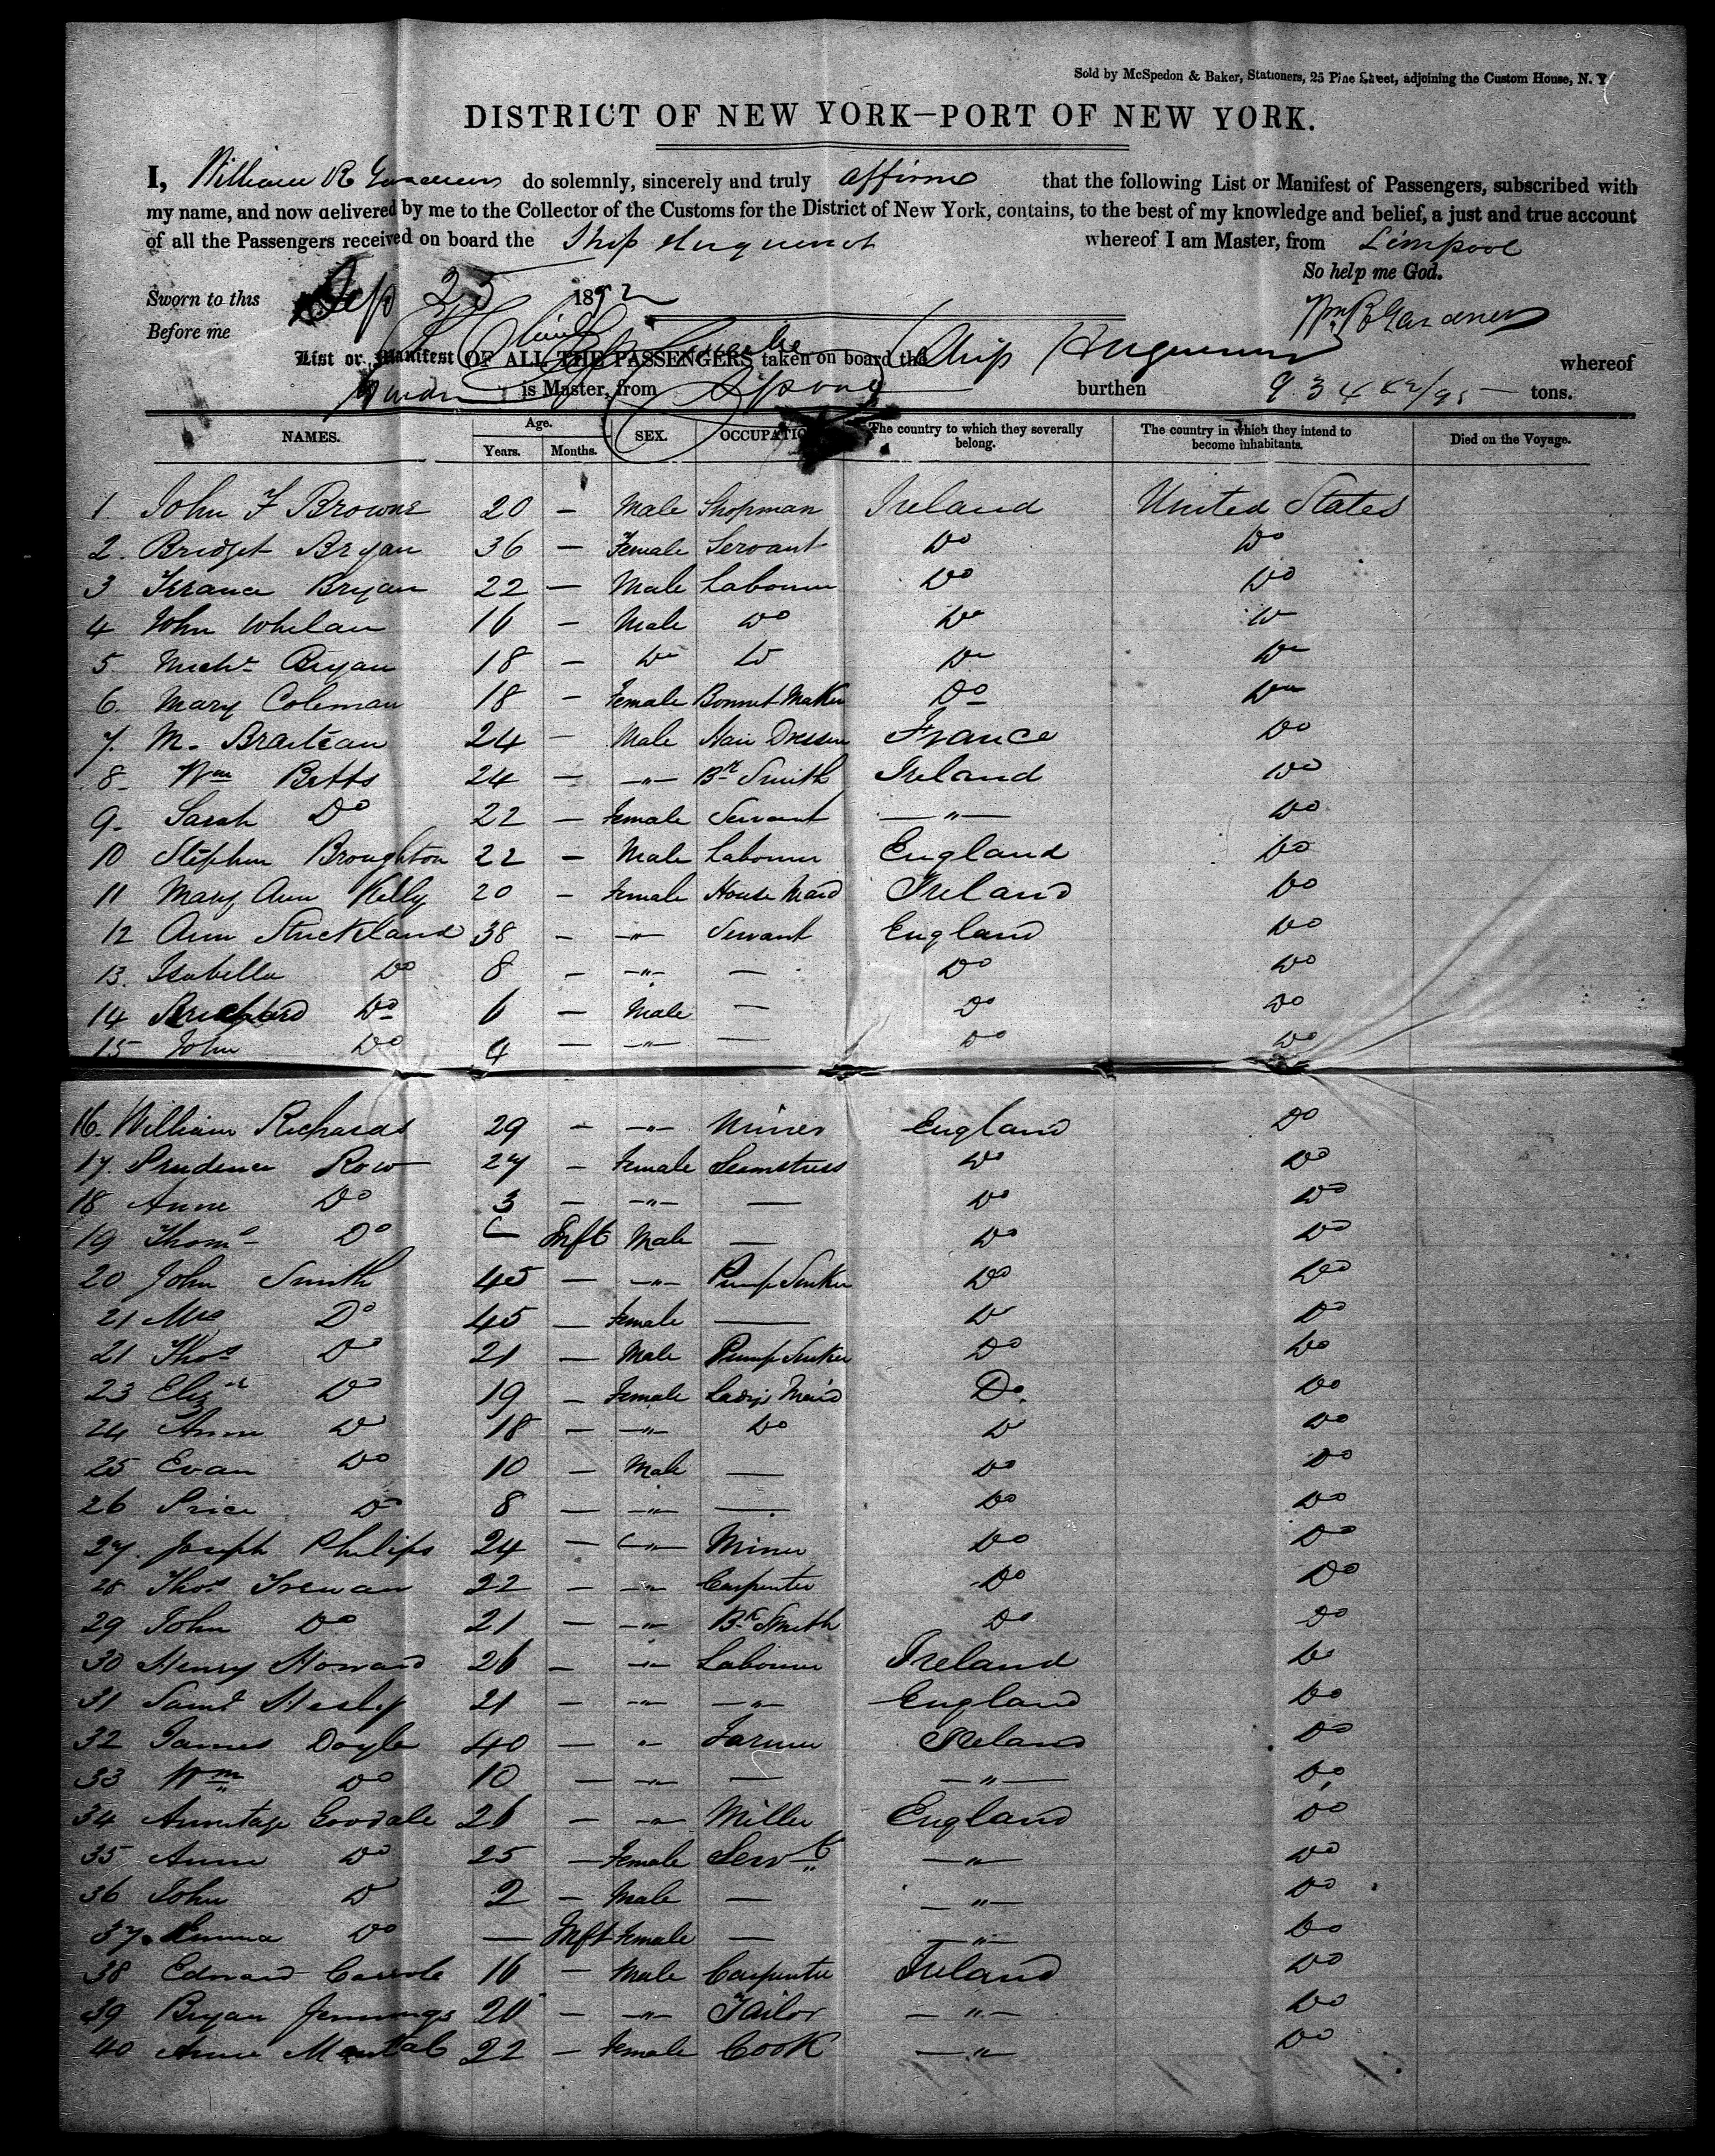 Sold by McSpedon & Baker, Stationers, 25 Pine Street, adjoining the Custom House, N. Y
DISTRICT OF NEW YORK—PORT OF NEW YORK.
I, William R Gardner do solemnly, sincerely and truly affirm that the following List or Manifest of Passengers, subscribed with
my name, and now delivered by me to the Collector of the Customs for the District of New York, contains, to the best of my knowledge and belief, a just and true account
of all the Passengers received on board the Ship Huguenot whereof I am Master, from Liverpool
So help me God.
Sworn to this Sep 25 1852
Before me Wm R Gardner
List or Manifest OF ALL THE PASSENGERS taken on board the Ship Huguenot whereof
is Master, from burthen 934 tons.
NAMES. Age. Years. Months. SEX. OCCUPATION The country to which they severally belong. The country in which they intend to become inhabitants. Died on the Voyage.
1. John F Browne 20 — Male Shopman Ireland United States
2. Bridget Bryan 36 — Female Servant Do Do
3 Terrance Bryan 22 — Male Labourer Do Do
4 John Whelan 16 — Male Do Do Do
5. Michl Bryan 18 — Do Do Do Do
6. Mary Coleman 18 — Female Bonnet Maker Do Do
7. M. 24 — Male Hair Dresser France Do
8. Wm Betts 24 — —"— Bk Smith Ireland Do
9. Sarah Do 22 — Female Servant —"— Do
10 Stephen Broughton 22 — Male Labourer England Do
11 Mary Ann Kelly 20 — Female House Maid Ireland Do
12 Ann Strickland 38 — —"— Servant England Do
13. Isabella Do 8 — —"— — Do Do
14 Richard Do 6 — Male — Do Do
15 John Do 4 — —"— — Do Do
16. William Richards 29 — —"— Miner England Do
17. Prudence Row 27 — Female Seamstress Do Do
18 Anne Do 3 — —"— — Do Do
19 Thoms Do — Inft Male — Do Do
20 John Smith 45 — —"— Pump Sinker Do Do
21 Mrs Do 45 — Female — Do Do
21 Thos Do 21 — Male Pump Sinker Do Do
23 Elizth Do 19 — Female Ladys Maid Do Do
24 Anne Do 18 — —"— Do Do Do
25 Evan Do 10 — Male — Do Do
26 Price Do 8 — —"— — Do Do
27. Joseph Philips 24 — —"— Miner Do Do
28 Thos 22 — —"— Carpenter Do Do
29 John Do 21 — —"— Bk Smith Do Do
30 Henry Howard 26 — —"— Labourer Ireland Do
31 Saml Heslip 21 — —"— —"— England Do
32 James Doyle 40 — " Farmer Ireland Do
33 Wm Do 10 — —"— — —"— Do
34 Armitage Goodale 26 — —"— Miller England Do
35 Anne Do 25 — Female Servt —"— Do
36 John Do 2 — Male — —"— Do
37. Emma Do — Inft Female — —"— Do
38 Edward Carrole 16 — Male Carpenter Ireland Do
39 Bryan Jennings 20 — —"— Tailor —"— Do
40 Anne 22 — Female Cook —"— Do